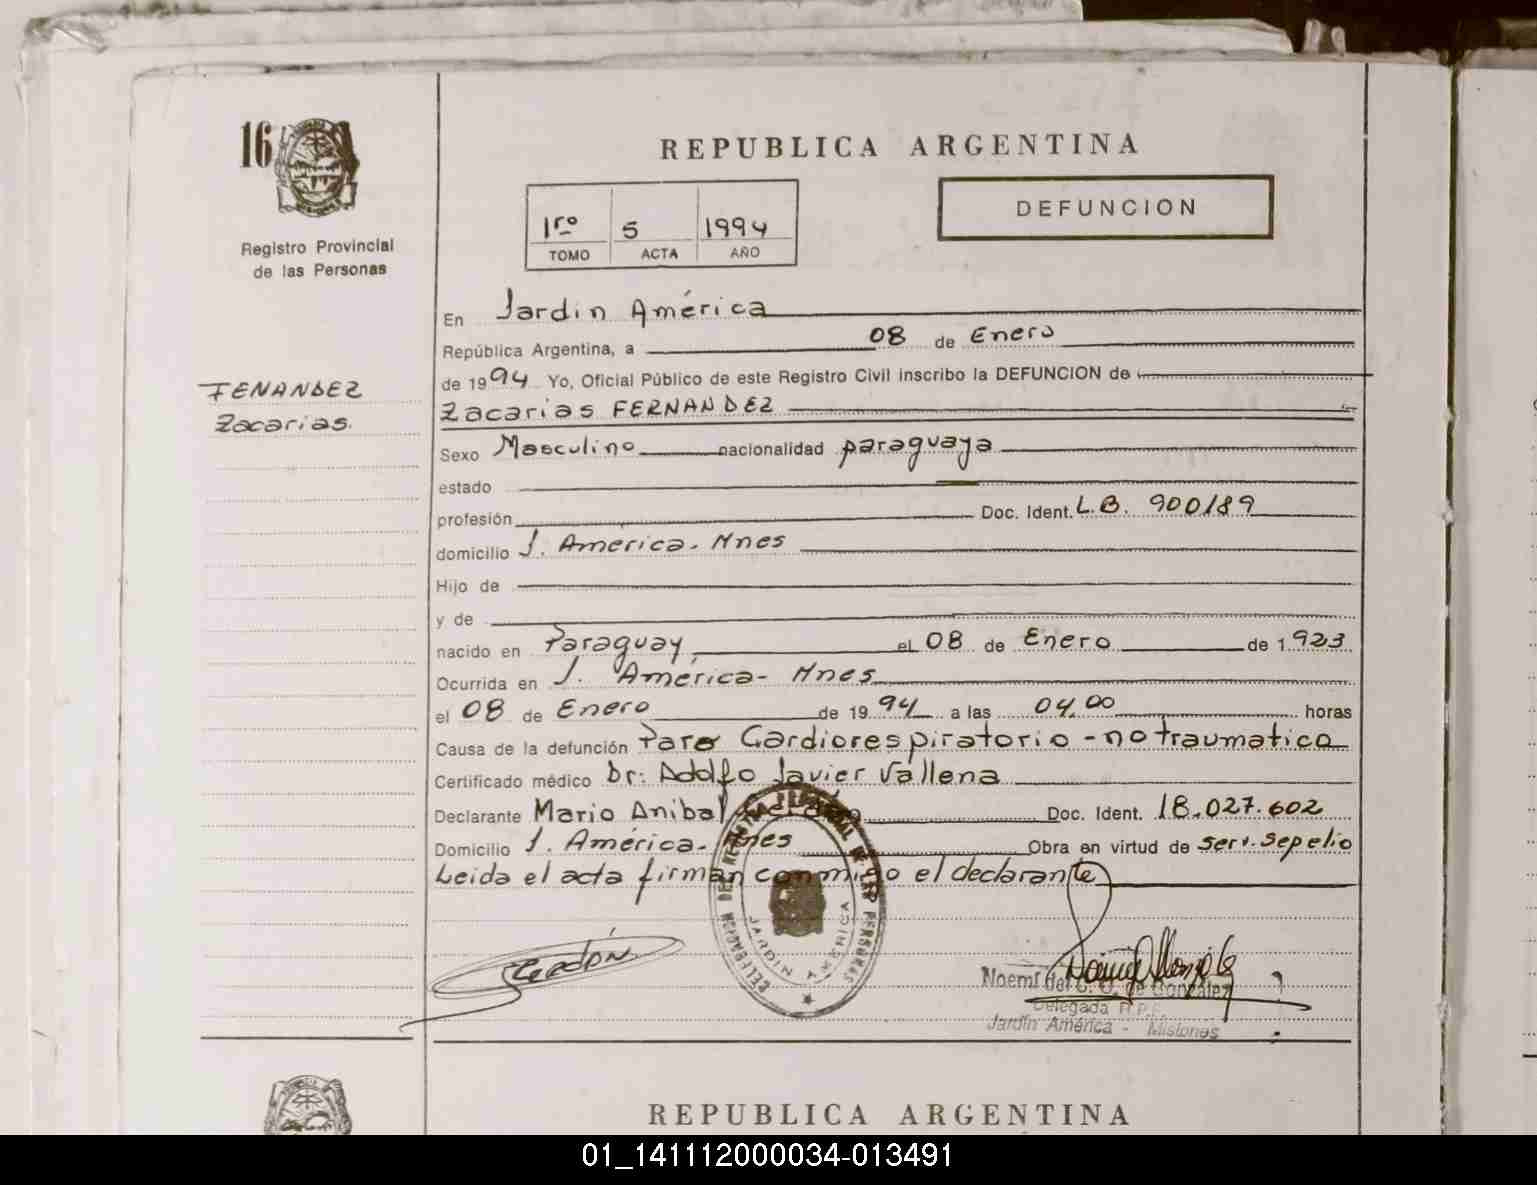 16
Registro Provincial
de las Personas
REPUBLICA ARGENTINA
1ro 5 1994
TOMO ACTA AÑO
DEFUNCION
FENANDEZ
Zacarias.
En Jardin América
República Argentina, a 08 de Enero
de 1994 Yo, Oficial Público de este Registro Civil inscribo la DEFUNCION de
Zacarias FERNANDEZ
Sexo Masculino nacionalidad paraguaya
estado
profesión Doc. Ident. L.B. 900189
domicilio J. America. Mnes
Hijo de
y de
nacido en Paraguay, el 08 de Enero de 1923
Ocurrida en J. América- Mnes
el 08 de Enero de 1994 a las 04,00 horas
Causa de la defunción Paro Cardiorespiratorio - no traumatico
Certificado médico Dr: Adolfo Javier Vallena
Declarante Mario Anibal Doc. Ident. 18.027.602
Domicilio J. América. Mnes Obra en virtud de serv. sepelio
Leida el acta firman conmigo el declarante
DELEGACION DEL REGISTRO PROVINCIAL DE LAS PERSONAS
JARDIN AMERICA
Noemí del C. de González
Delegada R.P.
Jardín América - Misiones
REPUBLICA ARGENTINA
01_141112000034-013491